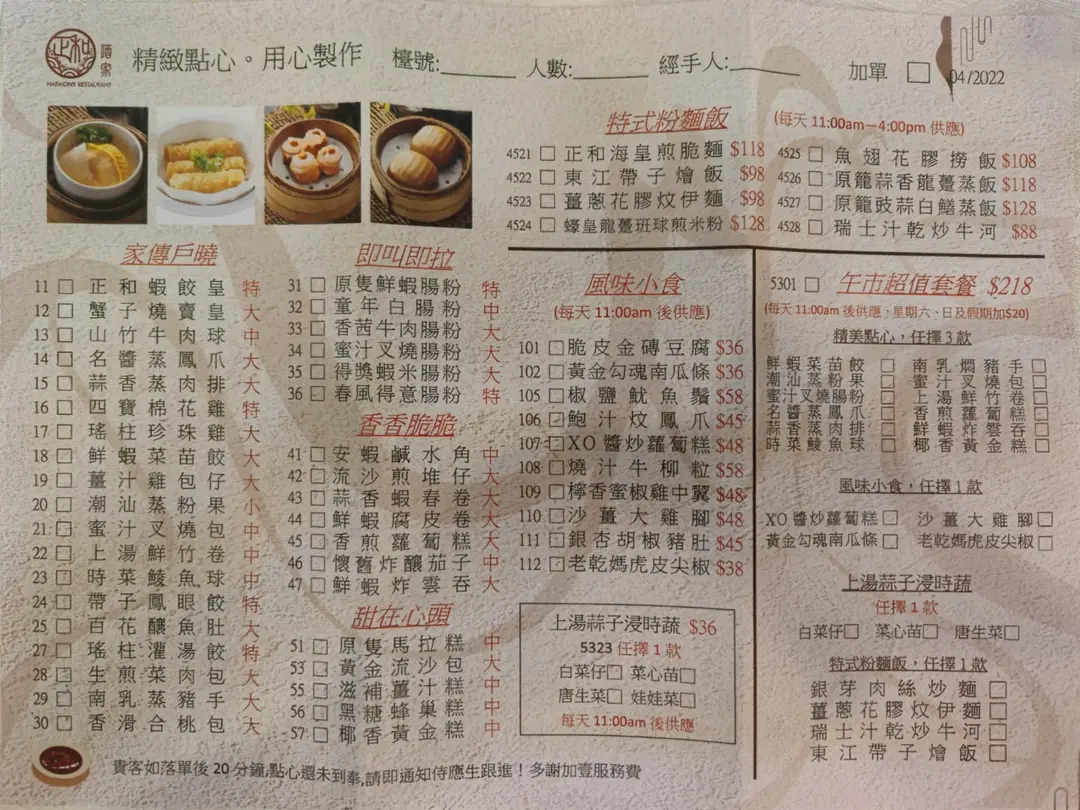 正和
酒家
HARMONY RESTAURANT
精緻點心。用心製作
檯號:______ 人數:______ 經手人:______
加單 □ 04/2022
特式粉麵飯 (每天 11:00am—4:00pm 供應)
4521 □ 正和海皇煎脆麵 $118
4522 □ 東江帶子燴飯 $98
4523 □ 薑蔥花膠炆伊麵 $98
4524 □ 蠔皇龍躉班球煎米粉 $128
4525 □ 魚翅花膠撈飯 $108
4526 □ 原籠蒜香龍躉蒸飯 $118
4527 □ 原籠豉蒜白鱔蒸飯 $128
4528 □ 瑞士汁乾炒牛河 $88
家傳戶曉
11 □ 正和蝦餃皇 特
12 □ 蟹子燒賣皇 大
13 □ 山竹牛肉球 中
14 □ 名醬蒸鳳爪 大
15 □ 蒜香蒸肉排 大
16 □ 四寶棉花雞 特
17 □ 瑤柱珍珠雞 大
18 □ 鮮蝦菜苗餃 大
19 □ 薑汁雞包仔 大
20 □ 潮汕蒸粉果 小
21 □ 蜜汁叉燒包 中
22 □ 上湯鮮竹卷 中
23 □ 時菜鯪魚球 中
24 □ 帶子鳳眼餃 特
25 □ 百花釀魚肚 大
27 □ 瑤柱灌湯餃 特
28 □ 生煎菜肉包 大
29 □ 南乳蒸豬手 大
30 □ 香滑合桃包 大
即叫即拉
31 □ 原隻鮮蝦腸粉 特
32 □ 童年白腸粉 大
33 □ 香茜牛肉腸粉 大
34 □ 蜜汁叉燒腸粉 大
35 □ 得獎蝦米腸粉 大
36 □ 春風得意腸粉 特
香香脆脆
41 □ 安蝦鹹水角 中
42 □ 流沙煎堆仔 大
43 □ 蒜香蝦春卷 大
44 □ 鮮蝦腐皮卷 大
45 □ 香煎蘿蔔糕 大
46 □ 懷舊炸釀茄子 中
47 □ 鮮蝦炸雲吞 大
甜在心頭
51 □ 原隻馬拉糕 中
53 □ 黃金流沙包 大
55 □ 滋補薑汁糕 中
56 □ 黑糖蜂巢糕 中
57 □ 椰香黃金糕 中
風味小食
(每天 11:00am 後供應)
101 □ 脆皮金磚豆腐 $36
102 □ 黃金勾魂南瓜條 $36
105 □ 椒鹽魷魚鬚 $58
106 □ 鮑汁炆鳳爪 $45
107 □ XO醬炒蘿蔔糕 $48
108 □ 燒汁牛柳粒 $58
109 □ 檸香蜜椒雞中翼 $48
110 □ 沙薑大雞腳 $48
111 □ 銀杏胡椒豬肚 $45
112 □ 老乾媽虎皮尖椒 $38
上湯蒜子浸時蔬 $36
5323 任擇 1 款
白菜仔□ 菜心苗□
唐生菜□ 娃娃菜□
每天 11:00am 後供應
5301 □ 午市超值套餐 $218
(每天 11:00am 後供應，星期六、日及假期加$20)
精美點心，任擇 3 款
鮮蝦菜苗餃 □ 南乳燜豬手 □
潮汕蒸粉果 □ 蜜汁叉燒包 □
蜜汁叉燒腸粉 □ 上湯鮮竹卷 □
名醬蒸鳳爪 □ 香煎蘿蔔糕 □
蒜香蒸肉排 □ 鮮蝦炸雲吞 □
時菜鯪魚球 □ 椰香黃金糕 □
風味小食，任擇 1 款
XO醬炒蘿蔔糕□ 沙薑大雞腳□
黃金勾魂南瓜條□ 老乾媽虎皮尖椒□
上湯蒜子浸時蔬
任擇 1 款
白菜仔□ 菜心苗□ 唐生菜□
特式粉麵飯，任擇 1 款
銀芽肉絲炒麵 □
薑蔥花膠炆伊麵 □
瑞士汁乾炒牛河 □
東江帶子燴飯 □
貴客如落單後 20 分鐘,點心還未到奉,請即通知侍應生跟進！多謝加壹服務費